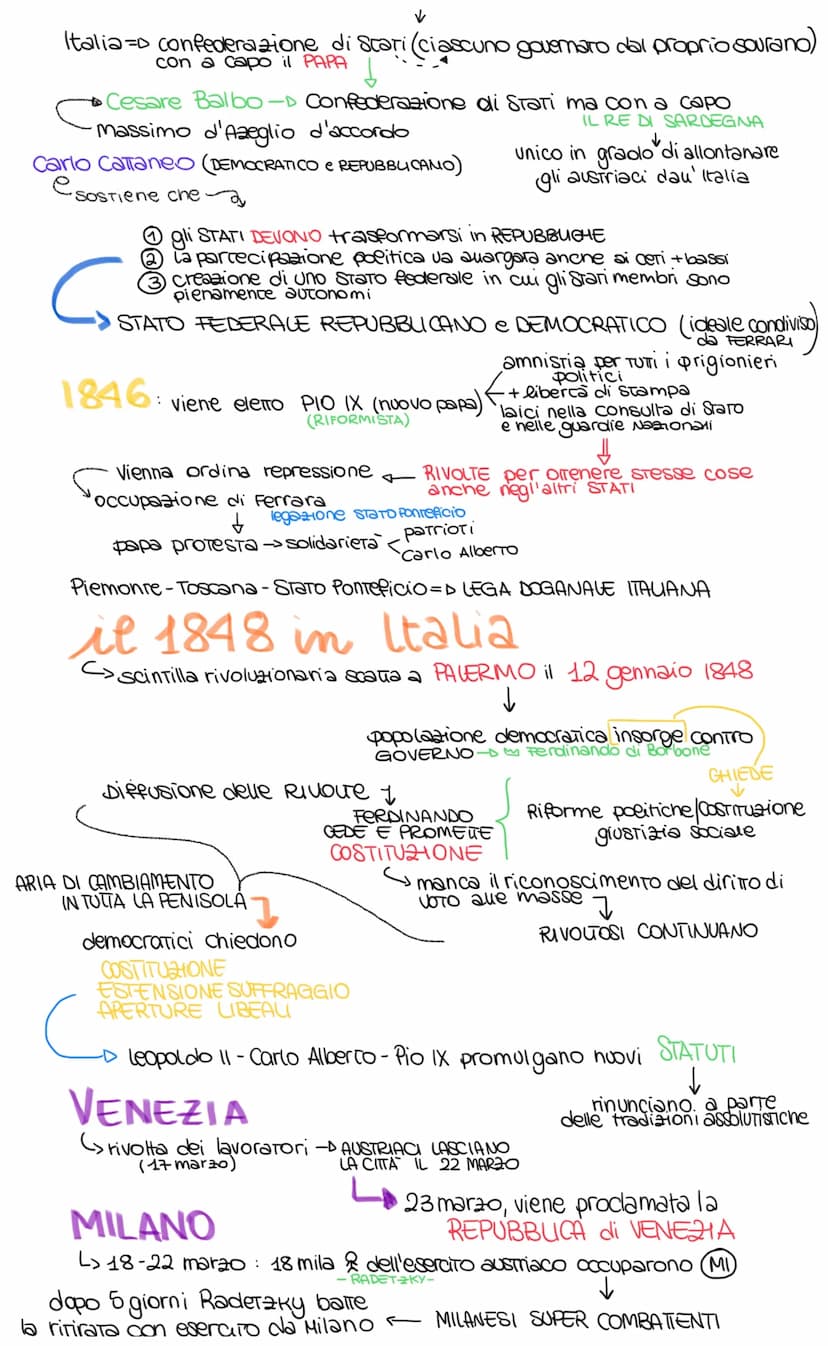 Italia => confederazione di stati (ciascuno governato dal proprio sovrano)
con a capo il PAPA
Cesare Balbo -> Confederazione di stati ma con a capo
IL RE DI SARDEGNA
Massimo d'Azeglio d'accordo
unico in grado di allontanare
gli austriaci dall'Italia
Carlo Cattaneo (DEMOCRATICO e REPUBBLICANO)
e sostiene che
① gli STATI DEVONO trasformarsi in REPUBBLICHE
② la partecipazione politica va allargata anche ai ceti + bassi
③ creazione di uno stato federale in cui gli stati membri sono
pienamente autonomi
STATO FEDERALE REPUBBLICANO e DEMOCRATICO (ideale condiviso
da FERRARI)
1846: viene eletto PIO IX (nuovo papa)
(RIFORMISTA)
amnistia per TUTTI i prigionieri
politici
+ libertà di stampa
laici nella consulta di stato
e nelle guardie nazionali
RIVOLTE per ottenere stesse cose
anche negl'altri STATI
Vienna ordina repressione
occupazione di Ferrara
legazione STATO PONTEFICIO
papa protesta -> solidarietà < patrioti
Carlo Alberto
Piemonte - Toscana - Stato Ponteficio => LEGA DOGANALE ITALIANA
il 1848 in Italia
scintilla rivoluzionaria scatta a PALERMO il 12 gennaio 1848
popolazione democratica insorge contro
GOVERNO -> Ferdinando di Borbone
CHIEDE
Riforme politiche/costituzione
giustizia sociale
Diffusione delle RIVOLTE
FERDINANDO
CEDE E PROMETTE
COSTITUZIONE
manca il riconoscimento del diritto di
voto alle masse
RIVOLTOSI CONTINUANO
ARIA DI CAMBIAMENTO
IN TUTTA LA PENISOLA
democratici chiedono
COSTITUZIONE
ESTENSIONE SUFFRAGGIO
APERTURE LIBEALI
Leopoldo II - Carlo Alberto - Pio IX promulgano nuovi STATUTI
rinunciano a parte
delle tradizioni assolutistiche
VENEZIA
rivolta dei lavoratori -> AUSTRIACI LASCIANO
(17 marzo) LA CITTÀ IL 22 MARZO
23 marzo, viene proclamata la
REPUBBLICA di VENEZIA
MILANO
18-22 marzo: 18 mila dell'esercito austriaco occuparono MI
- RADETZKY -
MILANESI SUPER COMBATTENTI
dopo 5 giorni Radetzky batte
la ritirata con esercito da Milano